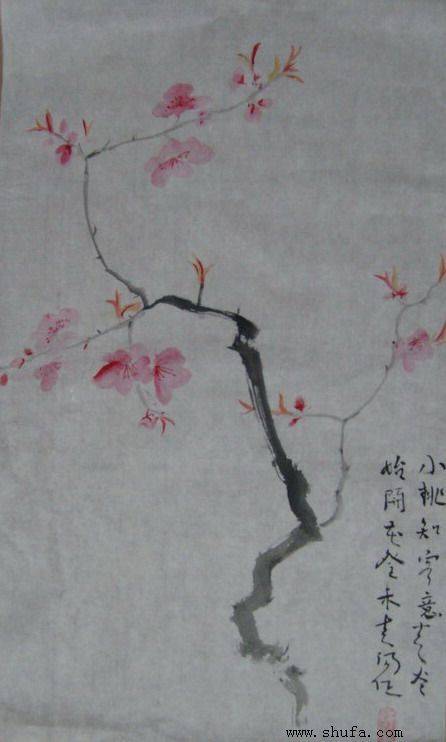 小桃知客意春尽
始開花癸未
www.shufa.com